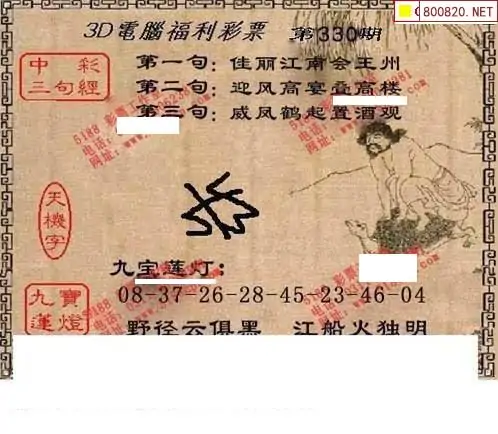 800820.NET
3D電腦福利彩票 第330期
中彩
三句經
第一句：佳丽江南会王州
第二句：迎风高宴叠高楼
第三句：威凤鹤起置酒观
天機字
九宝莲灯：
九寶
蓮燈
08-37-26-28-45-23-46-04
野径云俱黑 江船火独明